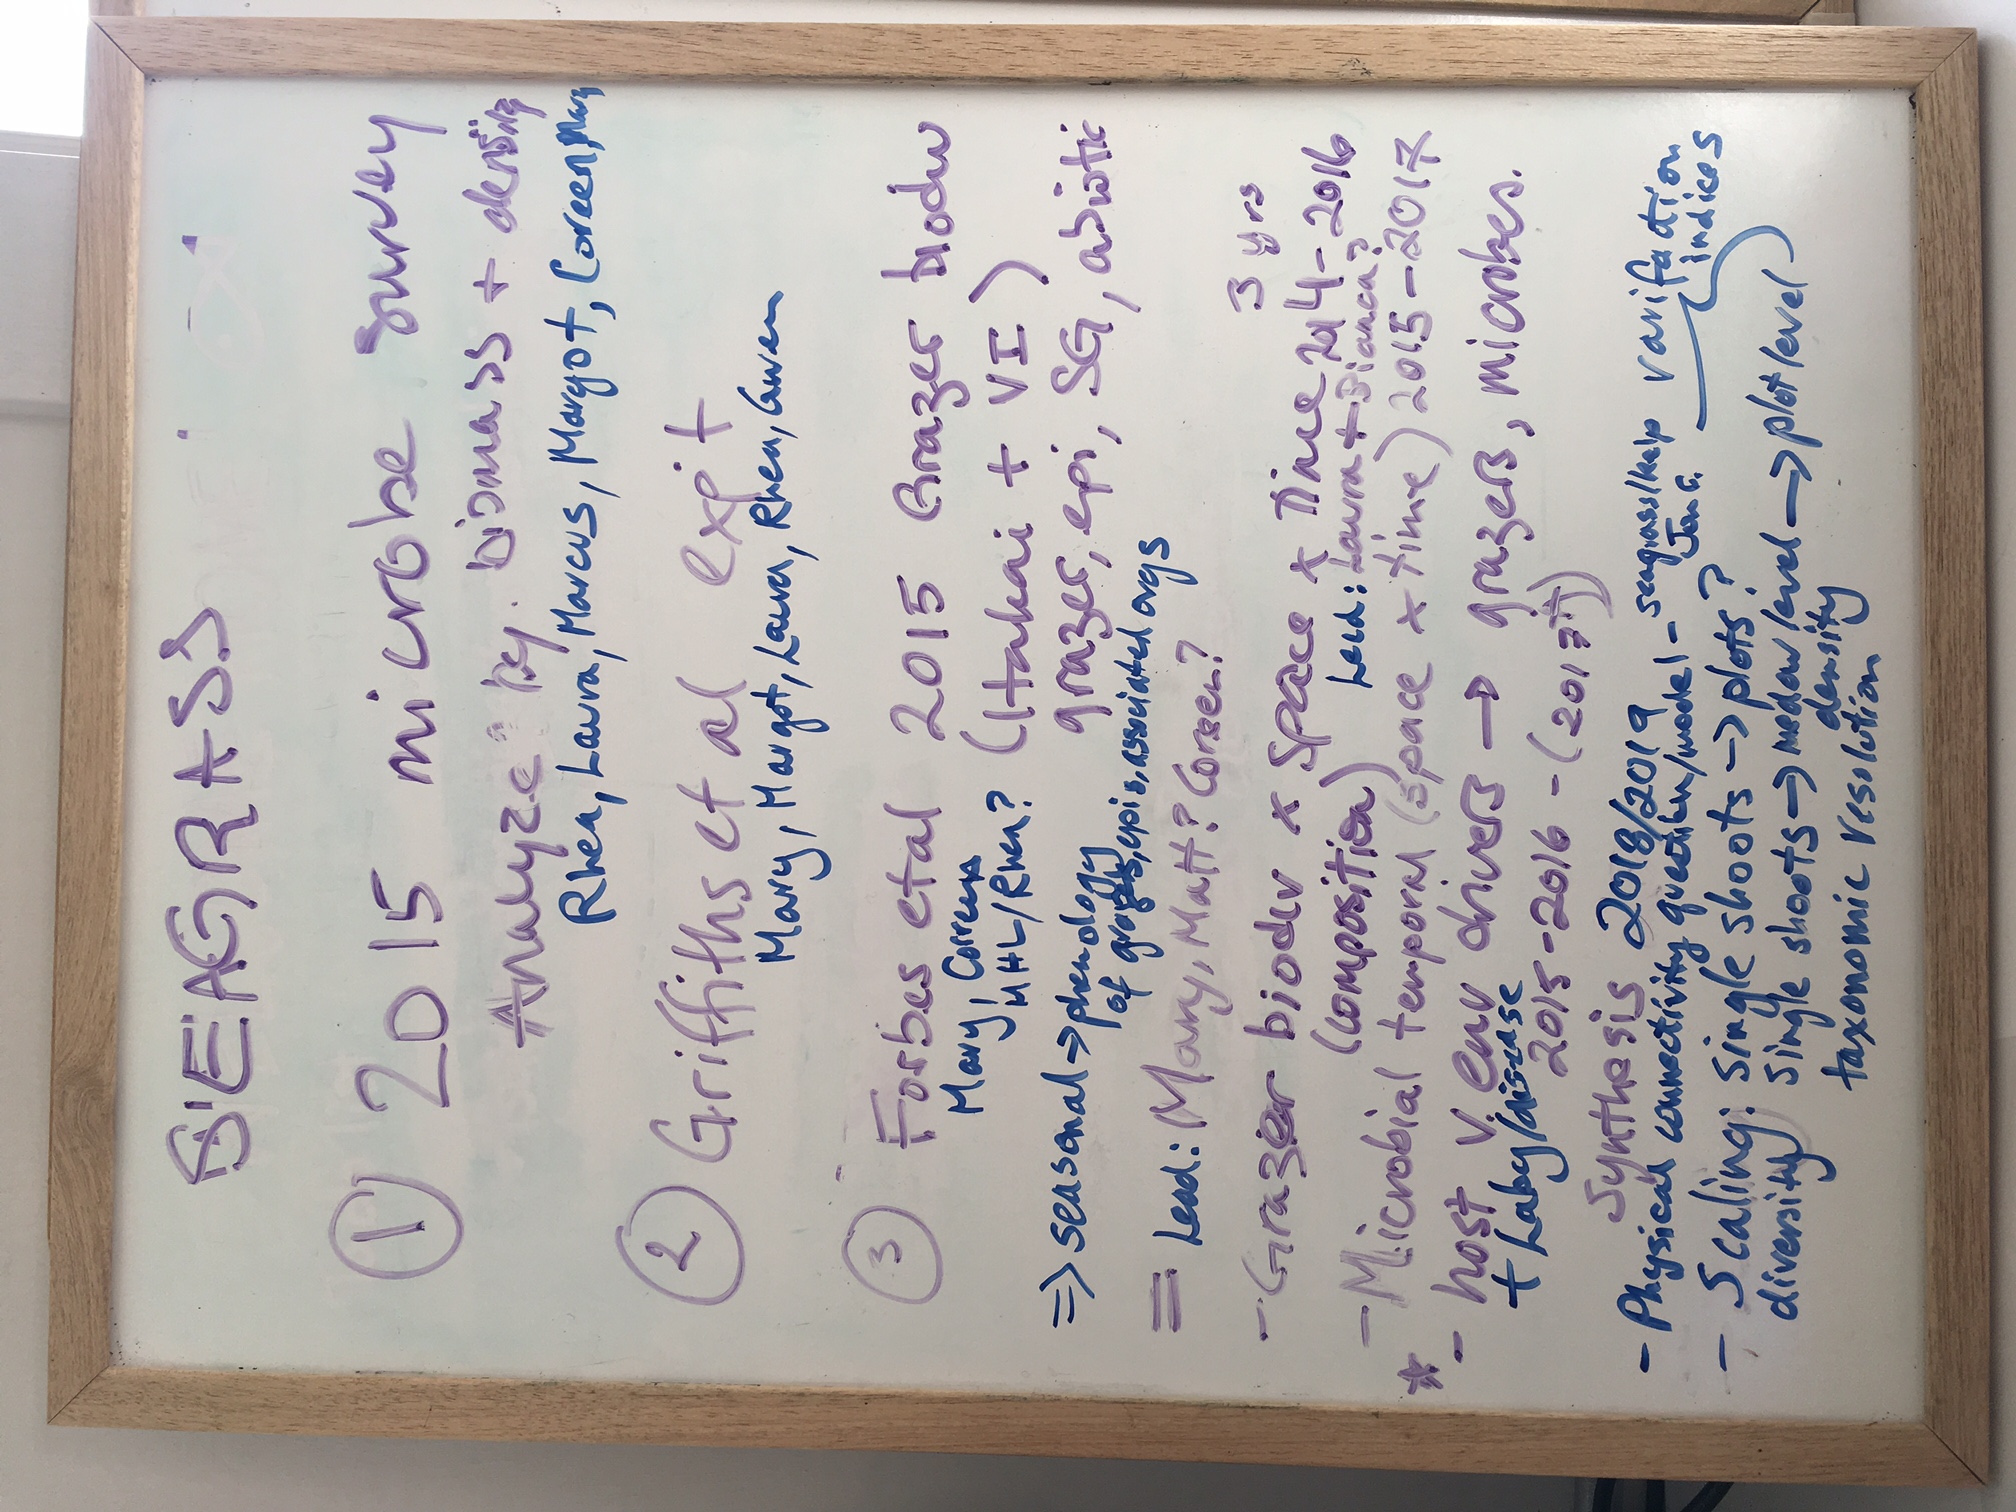 SEAGRASS
① 2015 microbe survey
Analyze by biomass + density
Rhea, Laura, Marcus, Margot, Coreen, Mary
② Griffiths et al exp't
Mary, Margot, Laura, Rhea, Gwen
③ Forbes et al 2015 Grazer biodiv
Mary, Coreen
MHL/Rhea? (Hakai + VI)
=> seasonal → phenology grazer, epi, SG, abiotic
of grazers, epis, associated orgs
= Lead: Mary, Matt? Coreen?
3 yrs
- Grazer biodiv x space x time 2014 - 2016
(composition) Lead: Laura + Bianca?
- Microbial temporal (space x time) 2015 - 2017
* - host v. env drivers → grazers, microbes.
+ Laby/disease
2015 - 2016 - (2017+)
Synthesis 2018/2019
- Physical connectivity question/model - seagrass/kelp
Jon G.
varifaction
indices
- Scaling: single shoots → plots?
diversity single shoots → medow level → plot level
density
taxonomic resolution